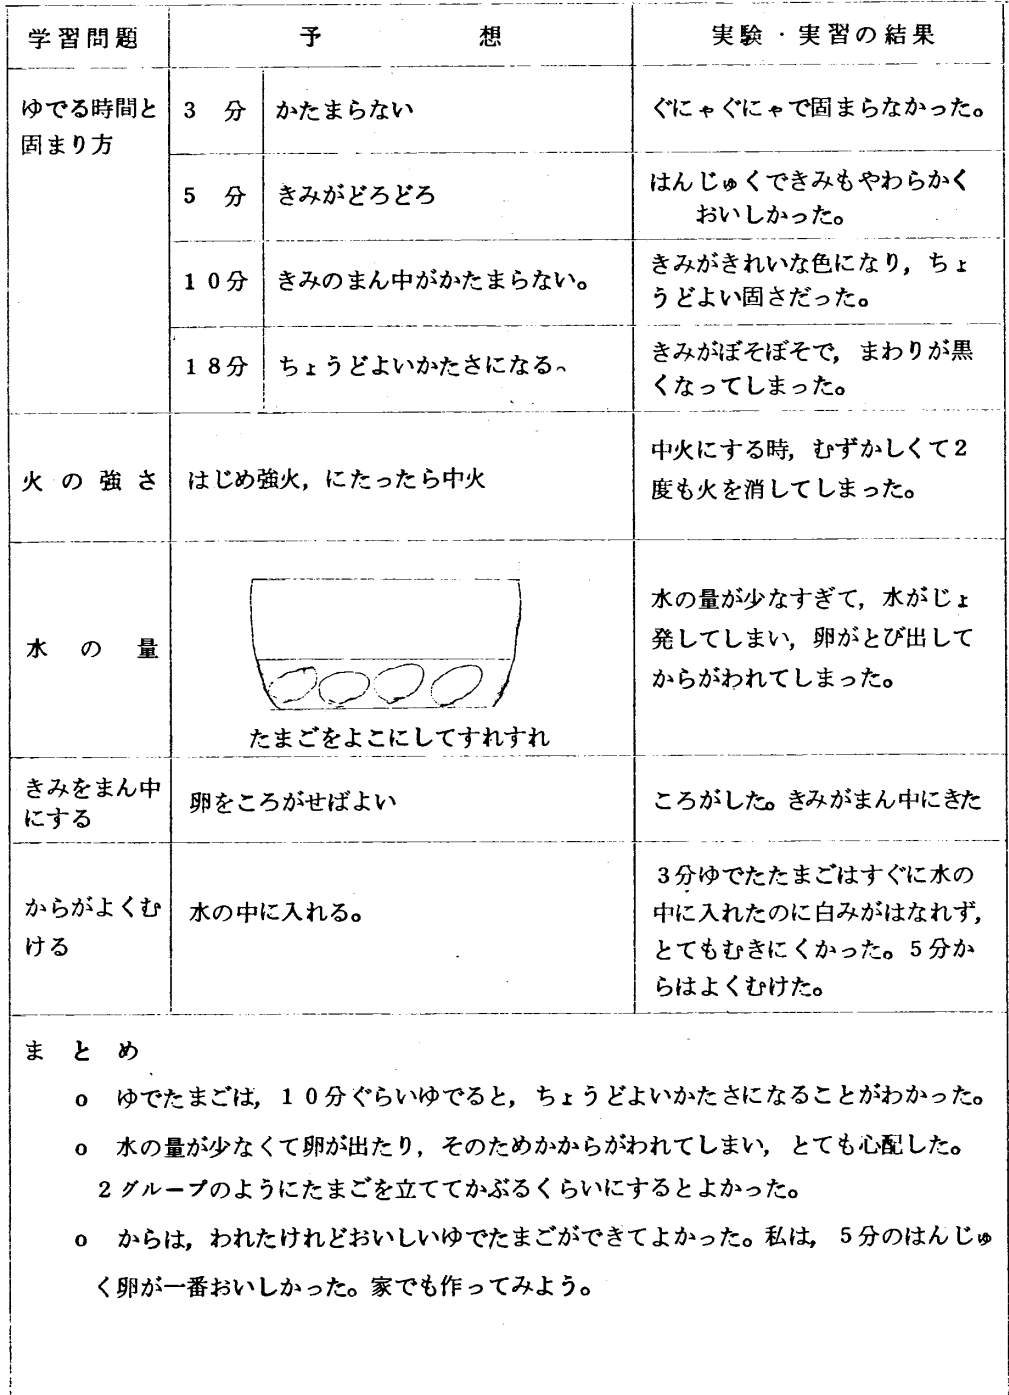 学習問題 予想 実験・実習の結果
ゆでる時間と
固まり方
3分 かたまらない ぐにゃぐにゃで固まらなかった。
5分 きみがどろどろ はんじゅくできみもやわらかく
おいしかった。
10分 きみのまん中がかたまらない。 きみがきれいな色になり，ちょ
うどよい固さだった。
18分 ちょうどよいかたさになる、 きみがぼそぼそで，まわりが黒
くなってしまった。
火の強さ はじめ強火，にたったら中火 中火にする時，むずかしくて2
度も火を消してしまった。
水の量
たまごをよこにしてすれすれ
水の量が少なすぎて，水がじょ
発してしまい，卵がとび出して
からがわれてしまった。
きみをまん中
にする
卵をころがせばよい ころがした。きみがまん中にきた
からがよくむ
ける
水の中に入れる。
3分ゆでたたまごはすぐに水の
中に入れたのに白みがはなれず，
とてもむきにくかった。5分か
らはよくむけた。
まとめ
o ゆでたまごは，10分ぐらいゆでると，ちょうどよいかたさになることがわかった。
o 水の量が少なくて卵が出たり，そのためかからがわれてしまい，とても心配した。
2グループのようにたまごを立ててかぶるくらいにするとよかった。
o からは，われたけれどおいしいゆでたまごができてよかった。私は，5分のはんじゅ
く卵が一番おいしかった。家でも作ってみよう。